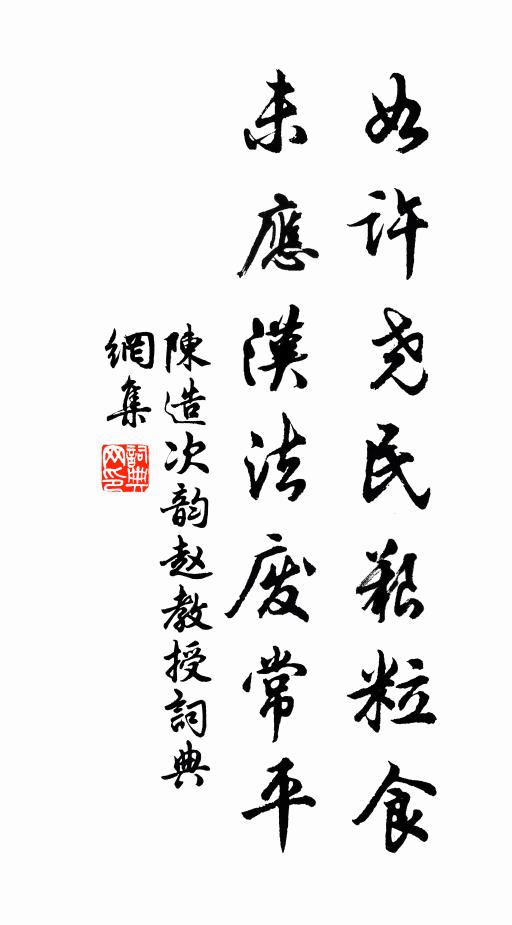 如許尧民艱粒食
未應漢法废常平
陳造次韵赵教授詞典
網集
詞典
网印